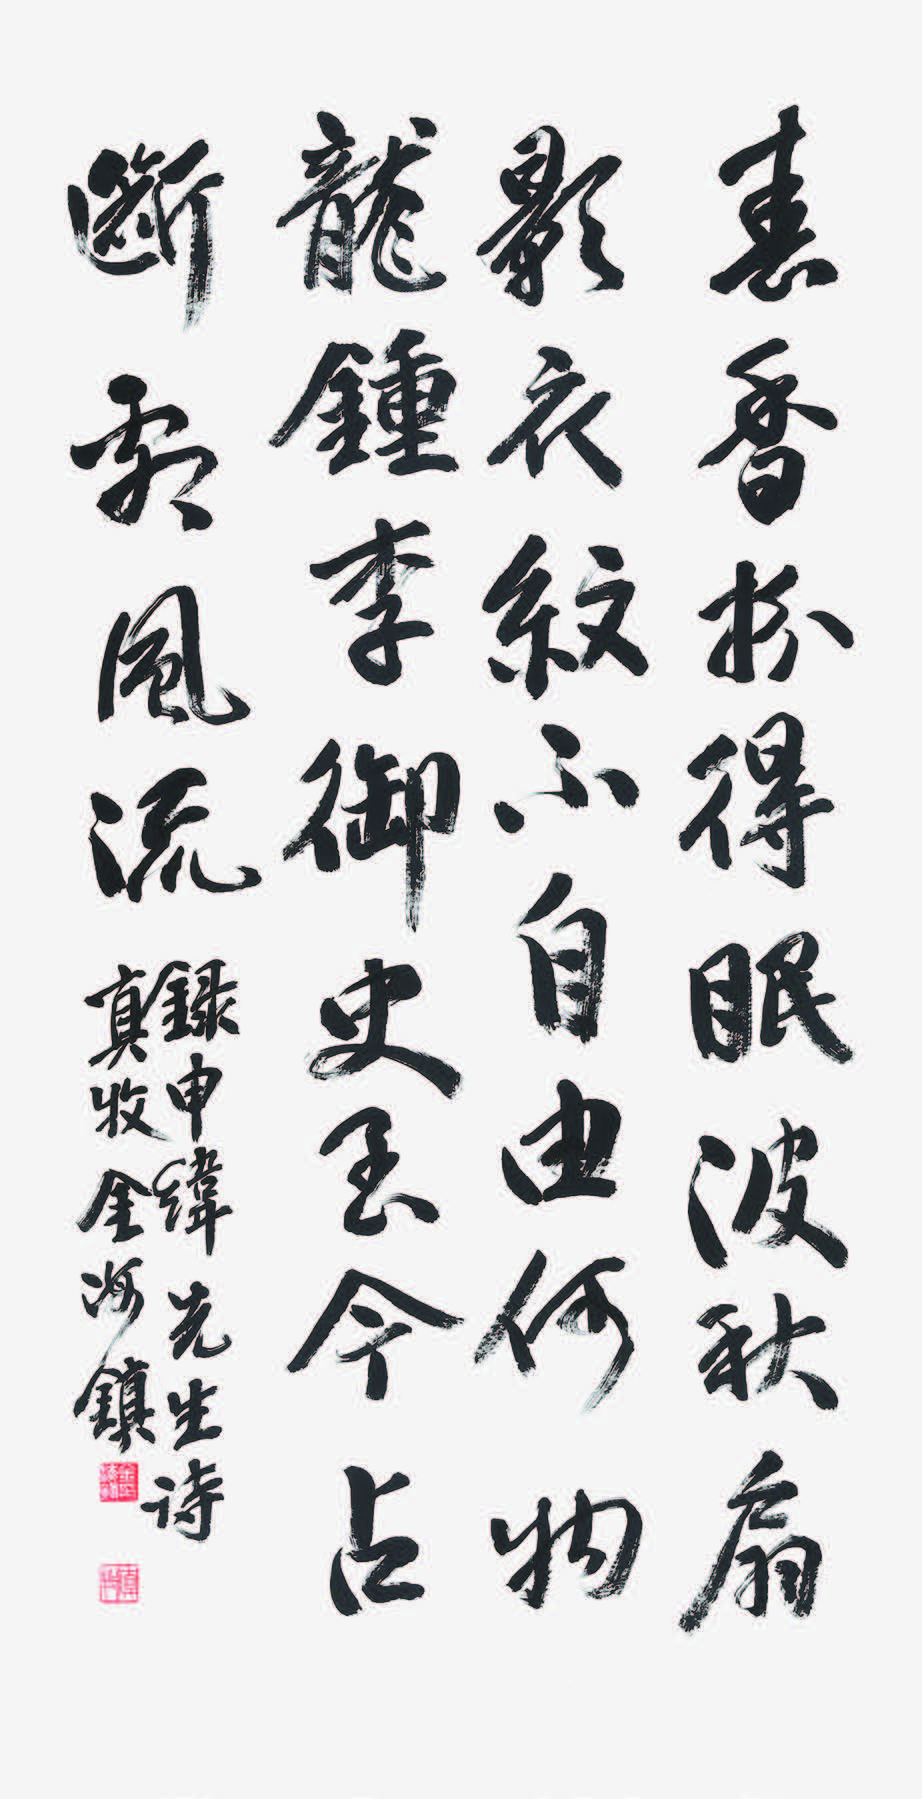 春香扮得眠波秋扇
影衣紋不自由何物
龍鍾李御史至今占
斷劇風流
錄申緯先生詩
真牧金海鎮